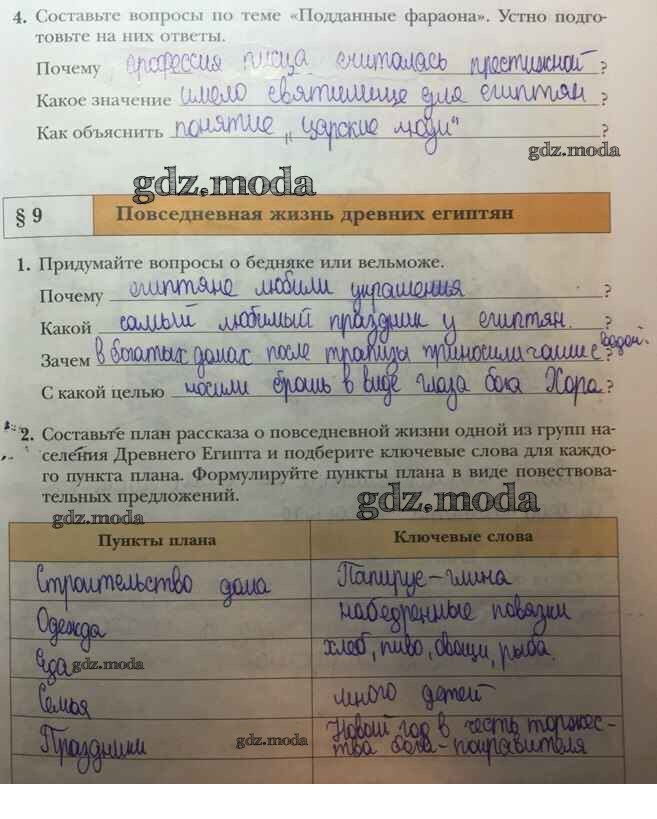 4. Составьте вопросы по теме «Подданные фараона». Устно подго-
товьте на них ответы.
Почему профессия писца считалась престижной ?
Какое значение имело святилище для египтян ?
Как объяснить понятие „царские люди“ ?
gdz.moda
gdz.moda
§ 9 Повседневная жизнь древних египтян
1. Придумайте вопросы о бедняке или вельможе.
Почему египтяне любили украшения ?
Какой самый любимый праздник у египтян. ?
Зачем в богатых домах после трапизы приносили чаши с водой. ?
С какой целью носили брошь в виде глаза бога Хора ?
2. Составьте план рассказа о повседневной жизни одной из групп на-
селения Древнего Египта и подберите ключевые слова для каждо-
го пункта плана. Формулируйте пункты плана в виде повествова-
тельных предложений.
gdz.moda
gdz.moda
Пункты плана Ключевые слова
Строительство дома Папирус-глина
Одежда набедренные повязки
Еда хлеб, пиво, овощи, рыба.
gdz.moda
Семья много детей
Праздники Новый год в честь торжес-
тва бога-
gdz.moda